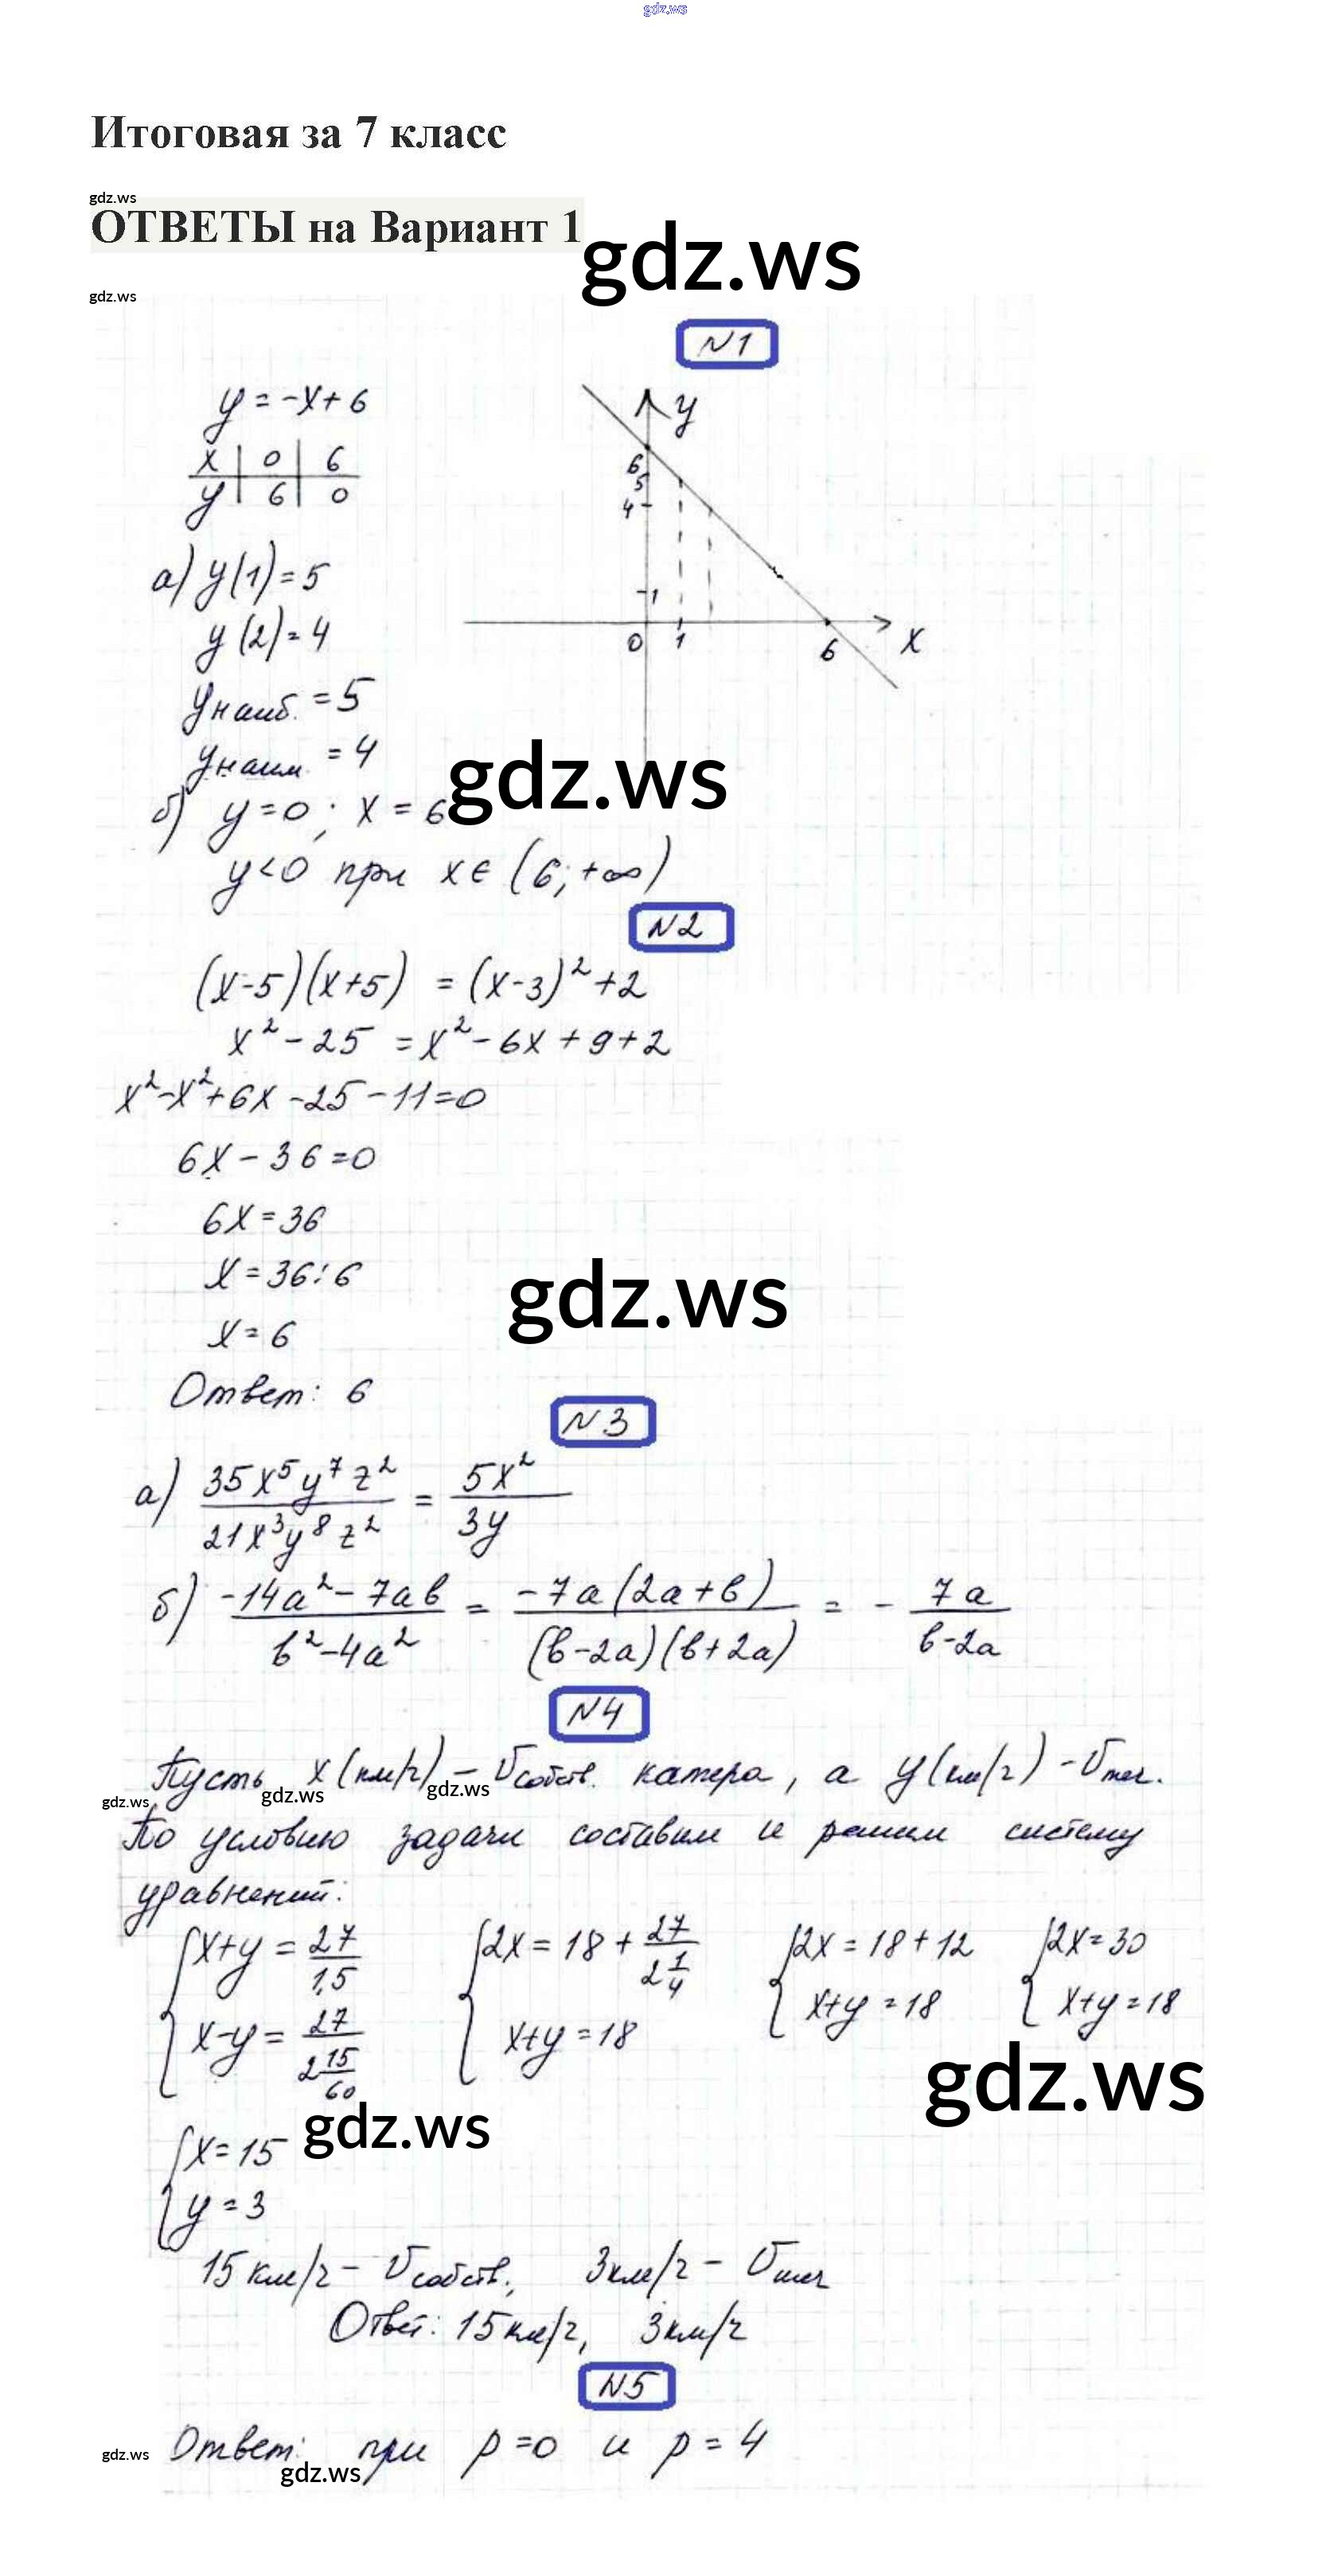 gdz.ws
Итоговая за 7 класс
gdz.ws
ОТВЕТЫ на Вариант 1
gdz.ws
gdz.ws
N1
y = -x + 6
x | 0 | 6
y | 6 | 0
y
6
5
4
1
0 1 6 x
а) y(1) = 5
y(2) = 4
yнаиб. = 5
yнаим. = 4
gdz.ws
б) y = 0; x = 6
y < 0 при x ∈ (6; +∞)
N2
(x-5)(x+5) = (x-3)² + 2
x² - 25 = x² - 6x + 9 + 2
x² - x² + 6x - 25 - 11 = 0
6x - 36 = 0
6x = 36
x = 36 : 6
gdz.ws
x = 6
Ответ: 6
N3
а) 35x⁵y⁷z² / 21x³y⁸z² = 5x² / 3y
б) -14a² - 7ab / b² - 4a² = -7a(2a+b) / (b-2a)(b+2a) = - 7a / b-2a
N4
Пусть x (км/ч) - Vсобств. катера, а y (км/ч) - Vтеч.
gdz.ws gdz.ws gdz.ws
По условию задачи составим и решим систему
уравнений:
{ x+y = 27/1,5 { 2x = 18 + 27/2 1/4 { 2x = 18 + 12 { 2x = 30
x-y = 27/2 15/60 x+y = 18 x+y = 18 x+y = 18
gdz.ws
gdz.ws
{ x = 15
y = 3
15 км/ч - Vсобств., 3 км/ч - Vтеч
Ответ: 15 км/ч, 3 км/ч
N5
gdz.ws
Ответ: при p = 0 и p = 4
gdz.ws